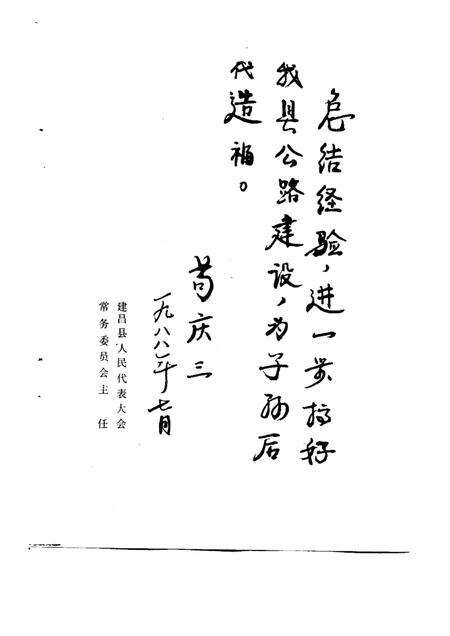 总结经验，进一步搞好
我县公路建设，为子孙后
代造福。
苟庆三
一九八八年七月
建昌县人民代表大会
常务委员会主任